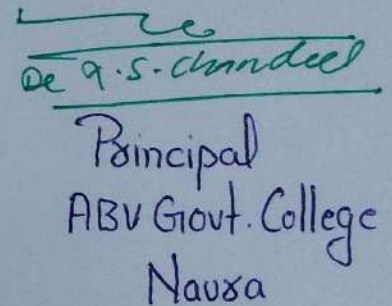 Dr R.S. Chandel
Principal
ABV Govt. College
Naura